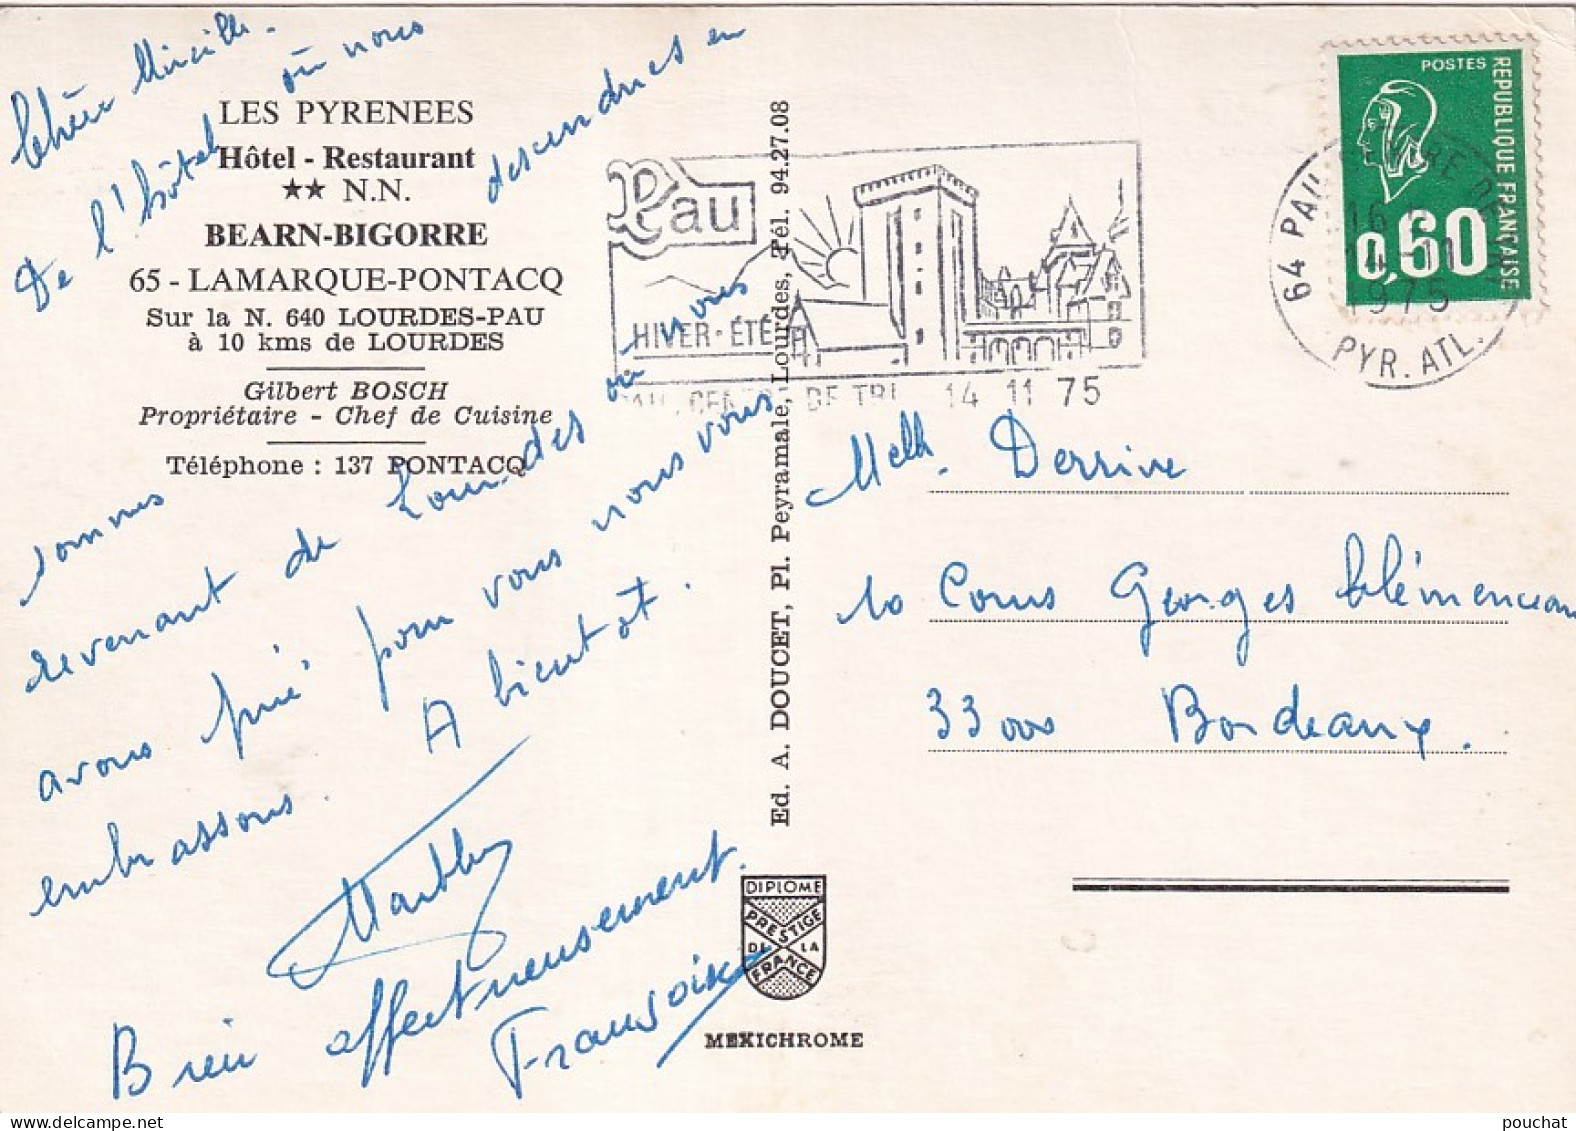 Chère Mireille.
De l'hôtel où nous
descendus en
LES PYRENEES
Hôtel - Restaurant
★★ N.N.
BEARN-BIGORRE
65 - LAMARQUE-PONTACQ
Sur la N. 640 LOURDES-PAU
à 10 kms de LOURDES
Gilbert BOSCH
Propriétaire - Chef de Cuisine
Téléphone : 137 PONTACQ
sommes
revenant de Lourdes où nous
avons prié pour vous nous vous
embrassons. A bientôt.
Bien affectueusement.
Françoise
Ed. A. DOUCET, Pl. Peyramale, Lourdes, Tél. 94.27.08
DIPLOME
PRESTIGE
DE LA
FRANCE
MEXICHROME
Pau
HIVER - ÉTÉ
PAU. CENTRE DE TRI 14 11 75
64 PAU CENTRE DE TRI
16 H
14 - 11
1975
PYR. ATL.
POSTES
REPUBLIQUE FRANÇAISE
0,60
Melle. Derrive
10 Cours Georges Clémenceau
33000 Bordeaux.
pouchat